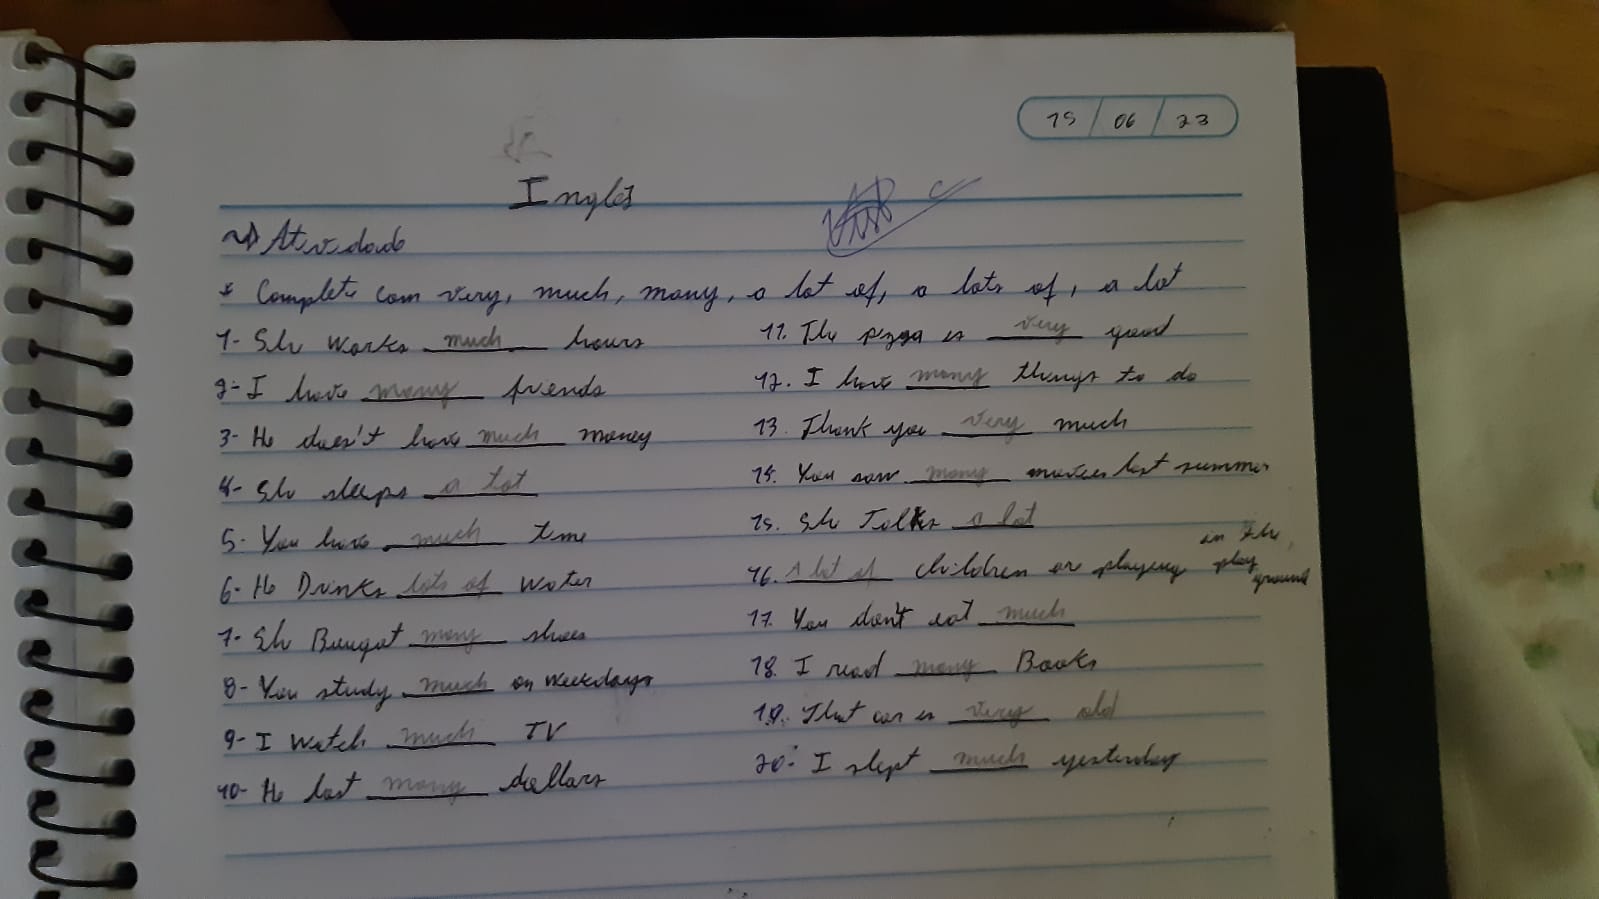 15/06/23
Inglês
Atividade
* Complete com very, much, many, a lot of, a lots of, a lot
1- She works much hours
2- I have many friends
3- He does't have much money
4- She sleeps a lot
5- You have much time
6- He Drinks lots of water
7- She Bougot many shoes
8- You study much on weekdays
9- I watch much TV
10- He lost many dollars
11. The pizza is very good
12. I have many things to do
13. Thank you very much
14. You saw many movies last summer
15. She Talks a lot
16. A lot of children are playing in the play ground
17. You don't eat much
18. I read many Books
19. That car is very old
20- I slept much yesterday